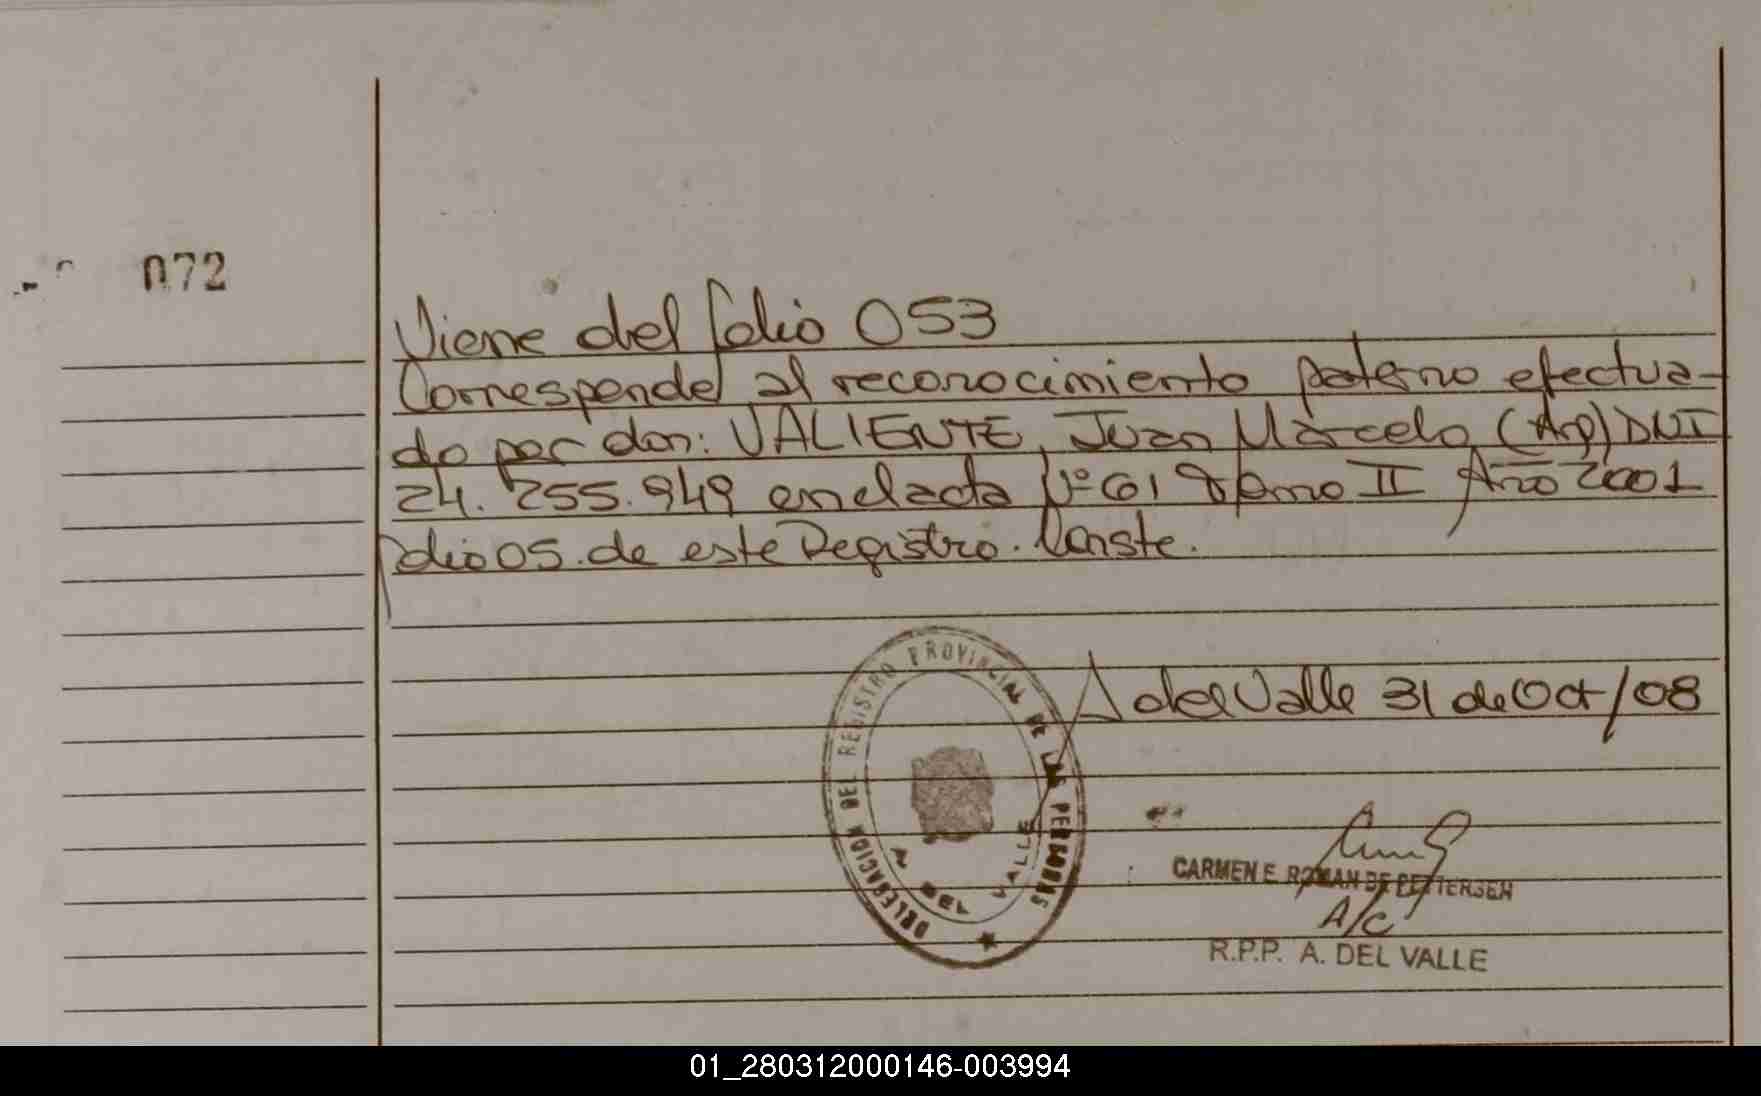 072
Viene del folio 053
Corresponde al reconocimiento paterno efectua-
do por don: VALIENTE, Juan Marcelo (Arg) DNI
24.255.949 en el acta Nº 61 Tomo II Año 2001
folio 05. de este Registro. Conste.
A del Valle 31 de Oct/08
DELEGACION DEL REGISTRO PROVINCIAL DE LAS PERSONAS
A DEL VALLE
CARMEN E. ROMAN DE PETTERSEN
A/C
R.P.P. A. DEL VALLE
01_280312000146-003994